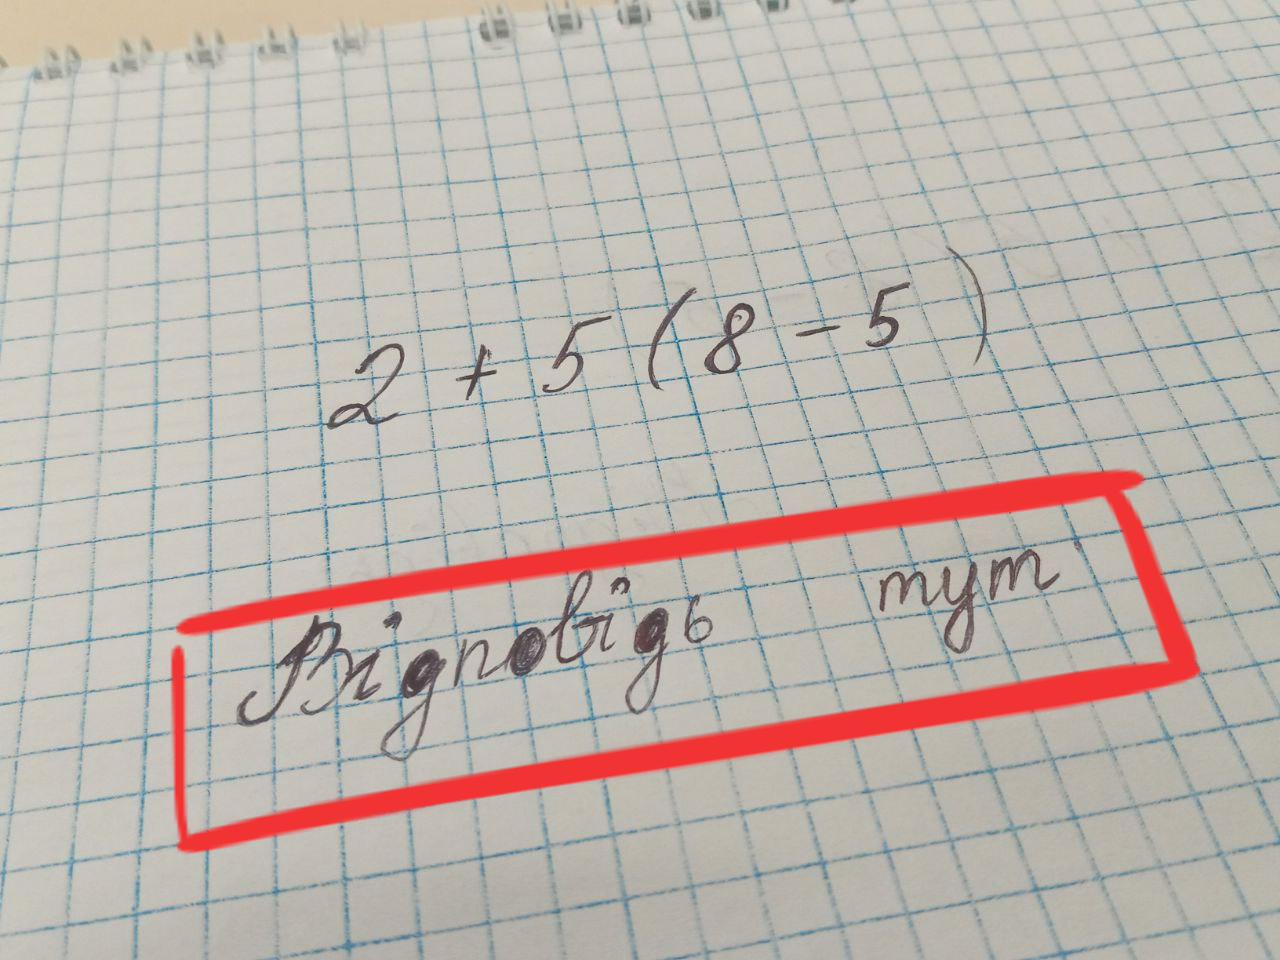 2 + 5 ( 8 - 5 )
Відповідь тут